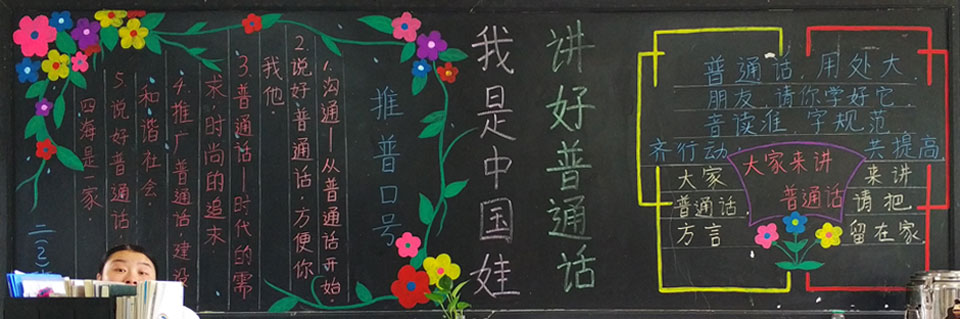 讲好普通话
我是中国娃
推普口号
1.沟通—从普通话开始.
2.说好普通话,方便你
我他
3.普通话—时代的需
求,时尚的追求
4.推广普通话建设
和谐社会
5.说好普通话
四海是一家
普通话,用处大,
朋友,请你学好它,
音读准,字规范
齐行动, 共提高,
大家 来讲
普通话, 请把
方言 留在家.
大家来讲
普通话